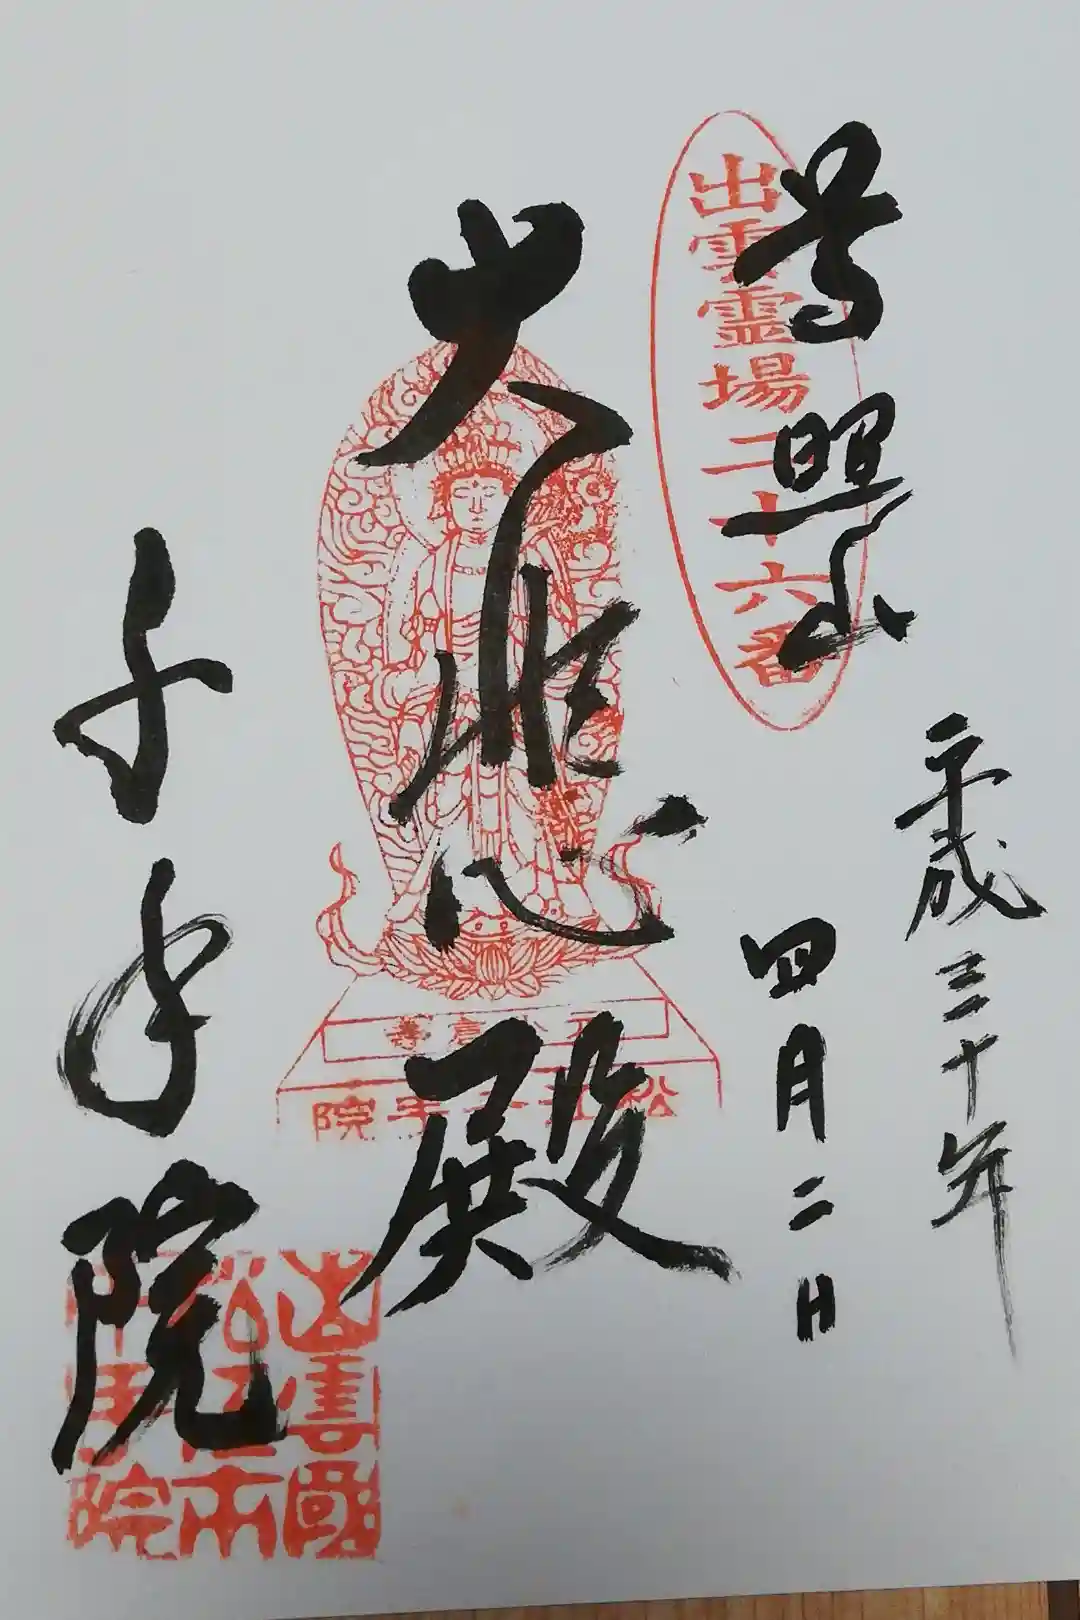 平成三十年
四月二日
尊照山
出雲霊場二十六番
大悲殿
松江千手院
千手院
出雲國
松江市
千手院